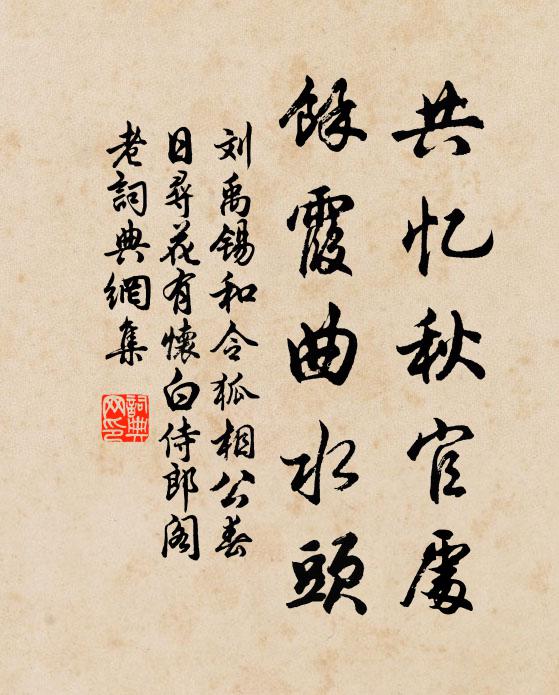 共忆秋官處
餘霞曲水頭
刘禹锡和令狐相公春
日尋花有懷白侍郎阁
老詞典網集
詞典
网印